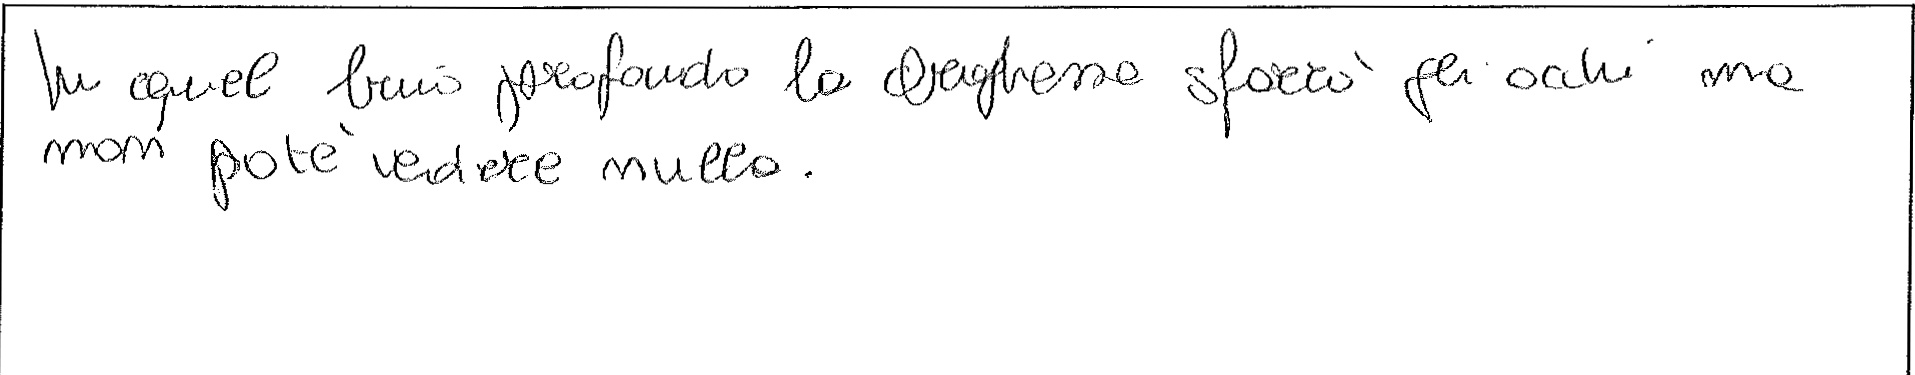 In quel buio profondo la Draghessa sforzò gli occhi ma
non potè vedere nulla.